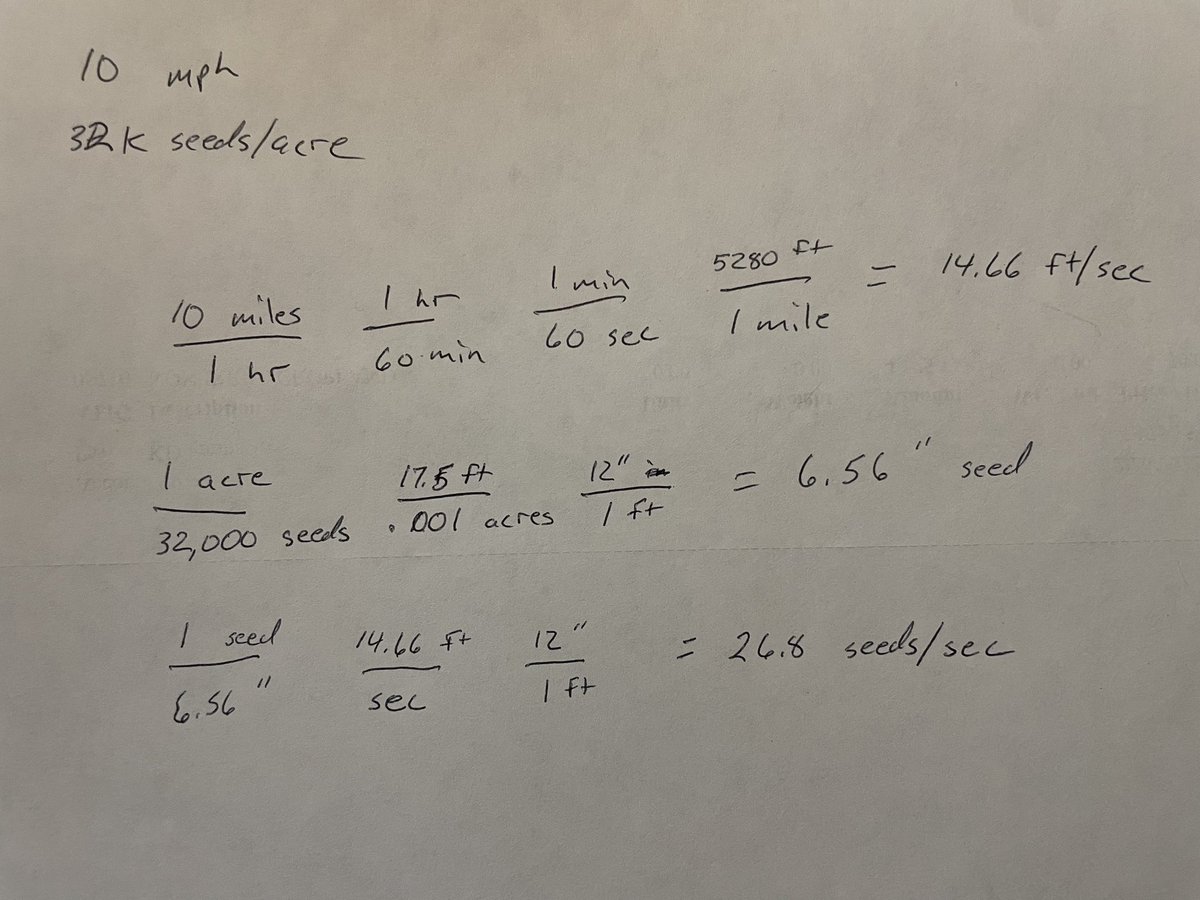 10 mph
32K seeds/acre
10 miles / 1 hr 1 hr / 60 min 1 min / 60 sec 5280 ft / 1 mile = 14.66 ft/sec
1 acre / 32,000 seeds 17.5 ft / .001 acres 12" / 1 ft = 6.56" seed
1 seed / 6.56" 14.66 ft / sec 12" / 1 ft = 26.8 seeds/sec